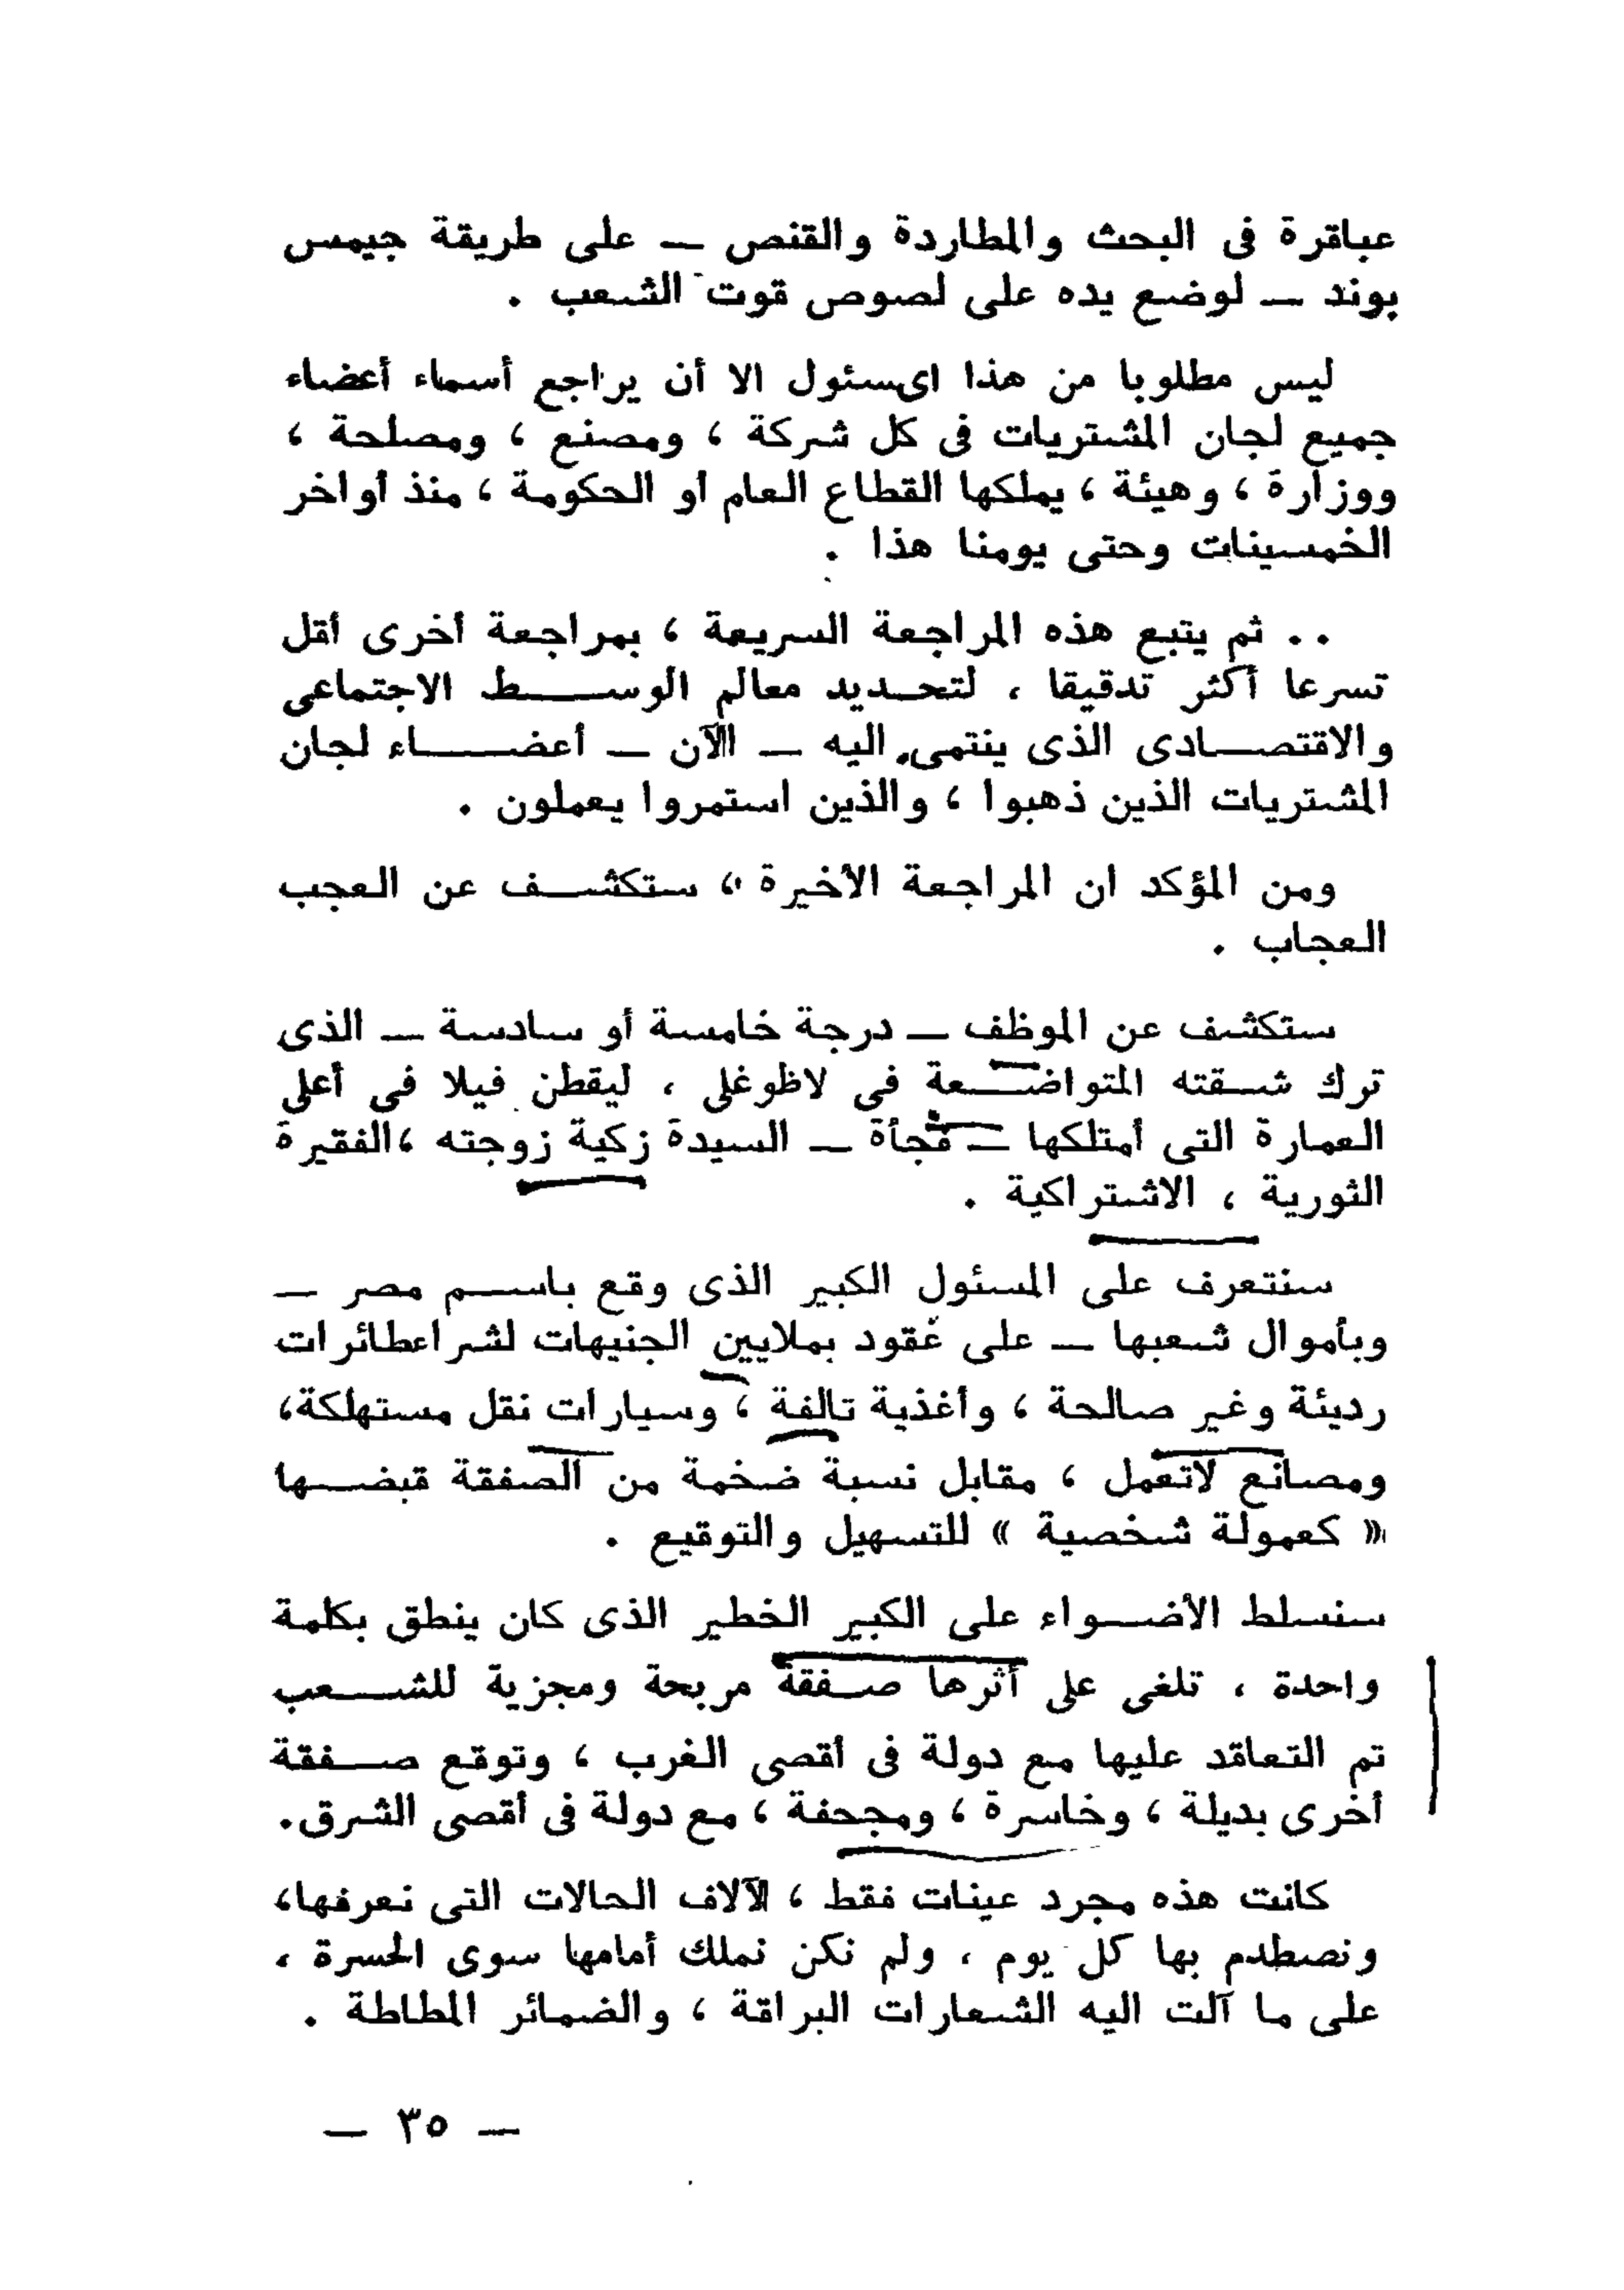 عباقرة فى البحث والمطاردة والقنص — على طريقة جيمس
بوند — لوضع يده على لصوص قوت الشعب .
ليس مطلوبا من هذا اىسئول الا أن يراجع أسماء أعضاء
جميع لجان المشتريات فى كل شركة ، ومصنع ، ومصلحة ،
ووزارة ، وهيئة ، يملكها القطاع العام أو الحكومة ، منذ أواخر
الخمسينات وحتى يومنا هذا .
.. ثم يتبع هذه المراجعة السريعة ، بمراجعة أخرى أقل
تسرعا أكثر تدقيقا ، لتحديد معالم الوسط الاجتماعى
والاقتصادى الذى ينتمى اليه — الآن — أعضاء لجان
المشتريات الذين ذهبوا ، والذين استمروا يعملون .
ومن المؤكد ان المراجعة الأخيرة ، ستكشف عن العجب
العجاب .
ستكشف عن الموظف — درجة خامسة أو سادسة — الذى
ترك شقته المتواضعة فى لاظوغلى ، ليقطن فيلا فى أعلى
العمارة التى أمتلكها — فجأة — السيدة زكية زوجته ،الفقيرة
الثورية ، الاشتراكية .
سنتعرف على المسئول الكبير الذى وقع باسم مصر —
وبأموال شعبها — على عقود بملايين الجنيهات لشراءطائرات
رديئة وغير صالحة ، وأغذية تالفة ، وسيارات نقل مستهلكة،
ومصانع لاتعمل ، مقابل نسبة ضخمة من الصفقة قبضها
« كعمولة شخصية » للتسهيل والتوقيع .
سنسلط الأضواء على الكبير الخطير الذى كان ينطق بكلمة
واحدة ، تلغى على أثرها صفقة مربحة ومجزية للشعب
تم التعاقد عليها مع دولة فى أقصى الغرب ، وتوقع صفقة
أخرى بديلة ، وخاسرة ، ومجحفة ، مع دولة فى أقصى الشرق.
كانت هذه مجرد عينات فقط ، لآلاف الحالات التى نعرفها،
ونصطدم بها كل يوم ، ولم نكن نملك أمامها سوى الحسرة ،
على ما آلت اليه الشعارات البراقة ، والضمائر المطاطة .
— ٣٥ —